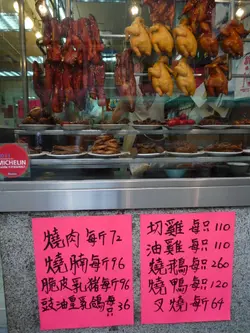 MICHELIN
燒肉每斤72
燒腩每斤96
脆皮乳豬每斤96
豉油皇乳鴿每只36
切雞每只110
油雞每只110
燒鵝每只260
燒鴨每只120
叉燒每斤64